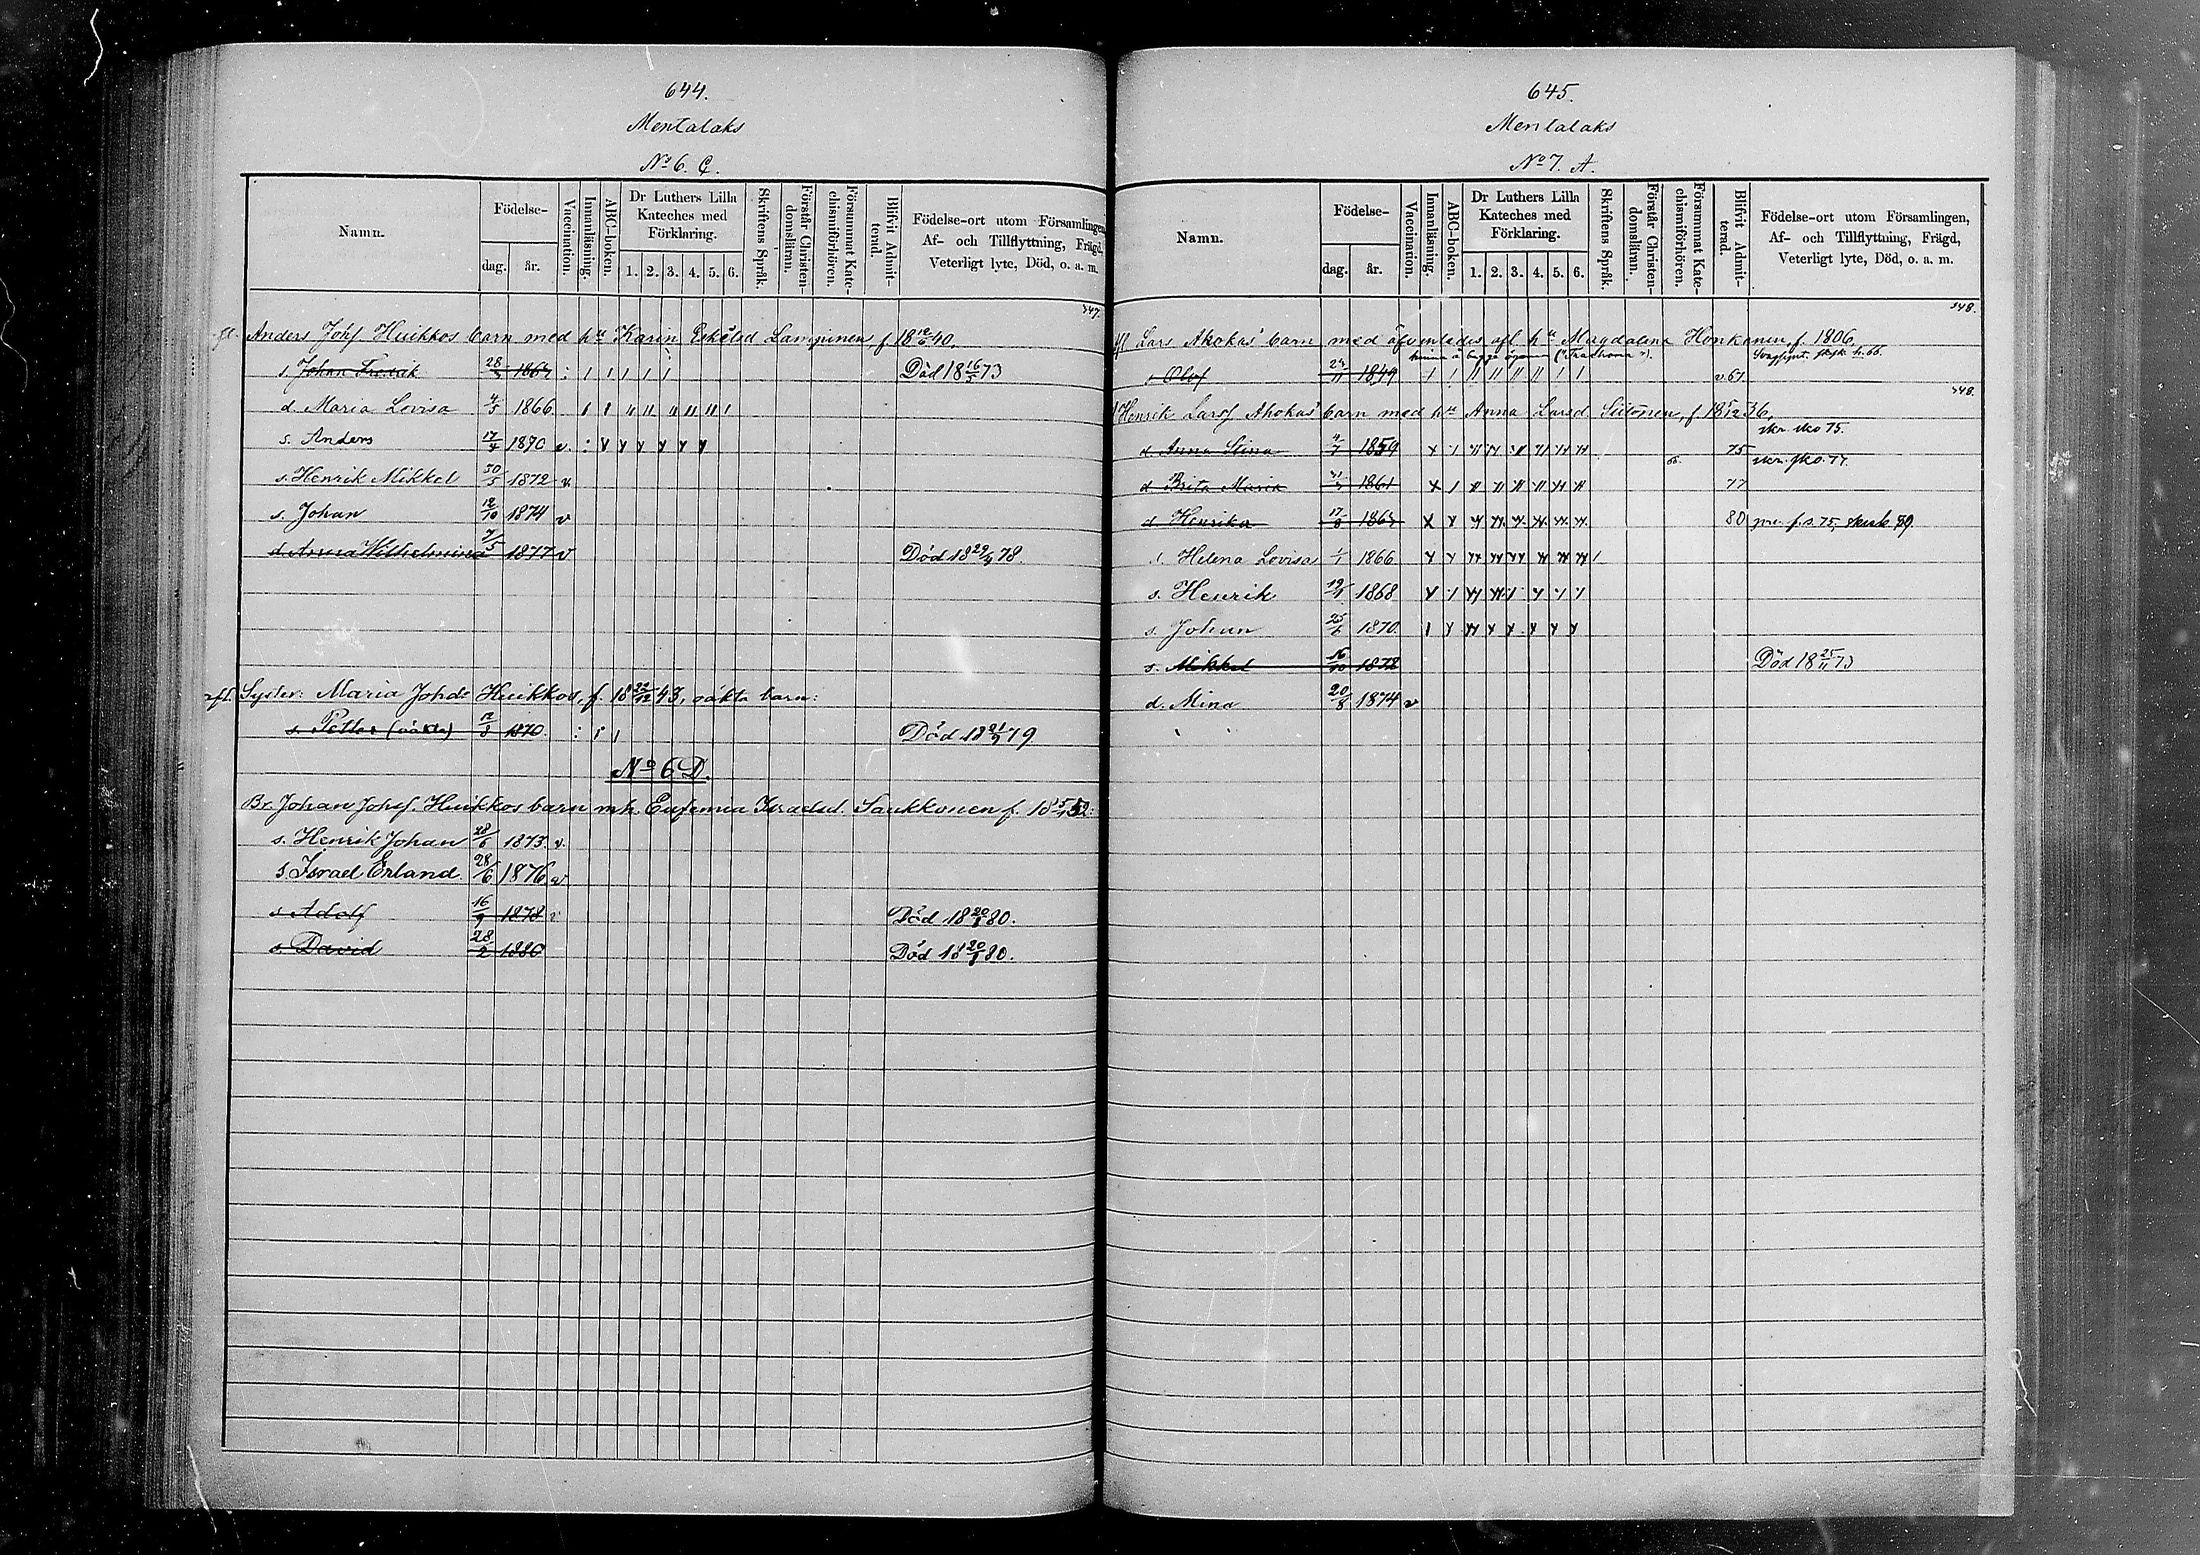 644.
Mentalaks
No 6. C.
Namn.
Födelse-
dag. år.
Vaccination.
Innanläsning.
ABC-boken.
Dr Luthers Lilla
Kateches med
Förklaring.
1. 2. 3. 4. 5. 6.
Skriftens Språk.
Förstår Christen-
domsläran.
Försummat Kate-
chismiförhören.
Blifvit Admit-
terad.
Födelse-ort utom Församlingen,
Af- och Tillflyttning, Frägd,
Veterligt lyte, Död, o. a. m.
347.
Anders Johsf Huikkos barn med hu Karin Eskelsd Lampinen, f 18 12/6 40.
s. Johan Fredrik 28 Död 18 16/5 73
d. Maria Lovisa 4/5 1866
s. Anders 17/4 1870 v.
s. Henrik Mikkel 30/5 1872 v.
s. Johan 12/10 1874 v
d. Anna Wilhelmina 7/5 1877 v Död 18 29/4 78.
Syster: Maria Johsd Huikkos, f. 18 22/12 43, oäkta barn:
s. Petter (oäkta) 12/3 1870. Död 18 21/9 79
No 6 D.
Br. Johan Johsf. Huikkos barn m.h. Eufemia Israelsd. Saukkonen f. 18 52:
s. Henrik Johan 28/6 1873. v.
s. Israel Erland. 28/6 1876 v
s Adolf 16/9 1878 v Död 18 20/8 80.
s David 28/2 1880 Död 18 20/8 80.
645.
Mentalaks
No 7. A.
Namn.
Födelse-
dag. år.
Vaccination.
Innanläsning.
ABC-boken.
Dr Luthers Lilla
Kateches med
Förklaring.
1. 2. 3. 4. 5. 6.
Skriftens Språk.
Förstår Christen-
domsläran.
Försummat Kate-
chismiförhören.
Blifvit Admit-
terad.
Födelse-ort utom Församlingen,
Af- och Tillflyttning, Frägd,
Veterligt lyte, Död, o. a. m.
348.
Lars Ahokas' barn med äfvenledes afl. hu Magdalena Honkanen, f. 1806.
s Olof 1849 v 67.
348.
Henrik Larsf Ahokas' barn med hu Anna Larsd Siitonen, f 18 5/12 36.
d. Anna Stina 4/7 1859 75
d Brita Maria 1861 66. 77
d Henrika 17/8 80
Helena Lovisa 1/1 1866
s. Henrik 19/4 1868
s. Johan 25/6 1870.
s. Mikkel 16/10 1872 Död 18 25/11 73
d. Mina 20/8 1874 v